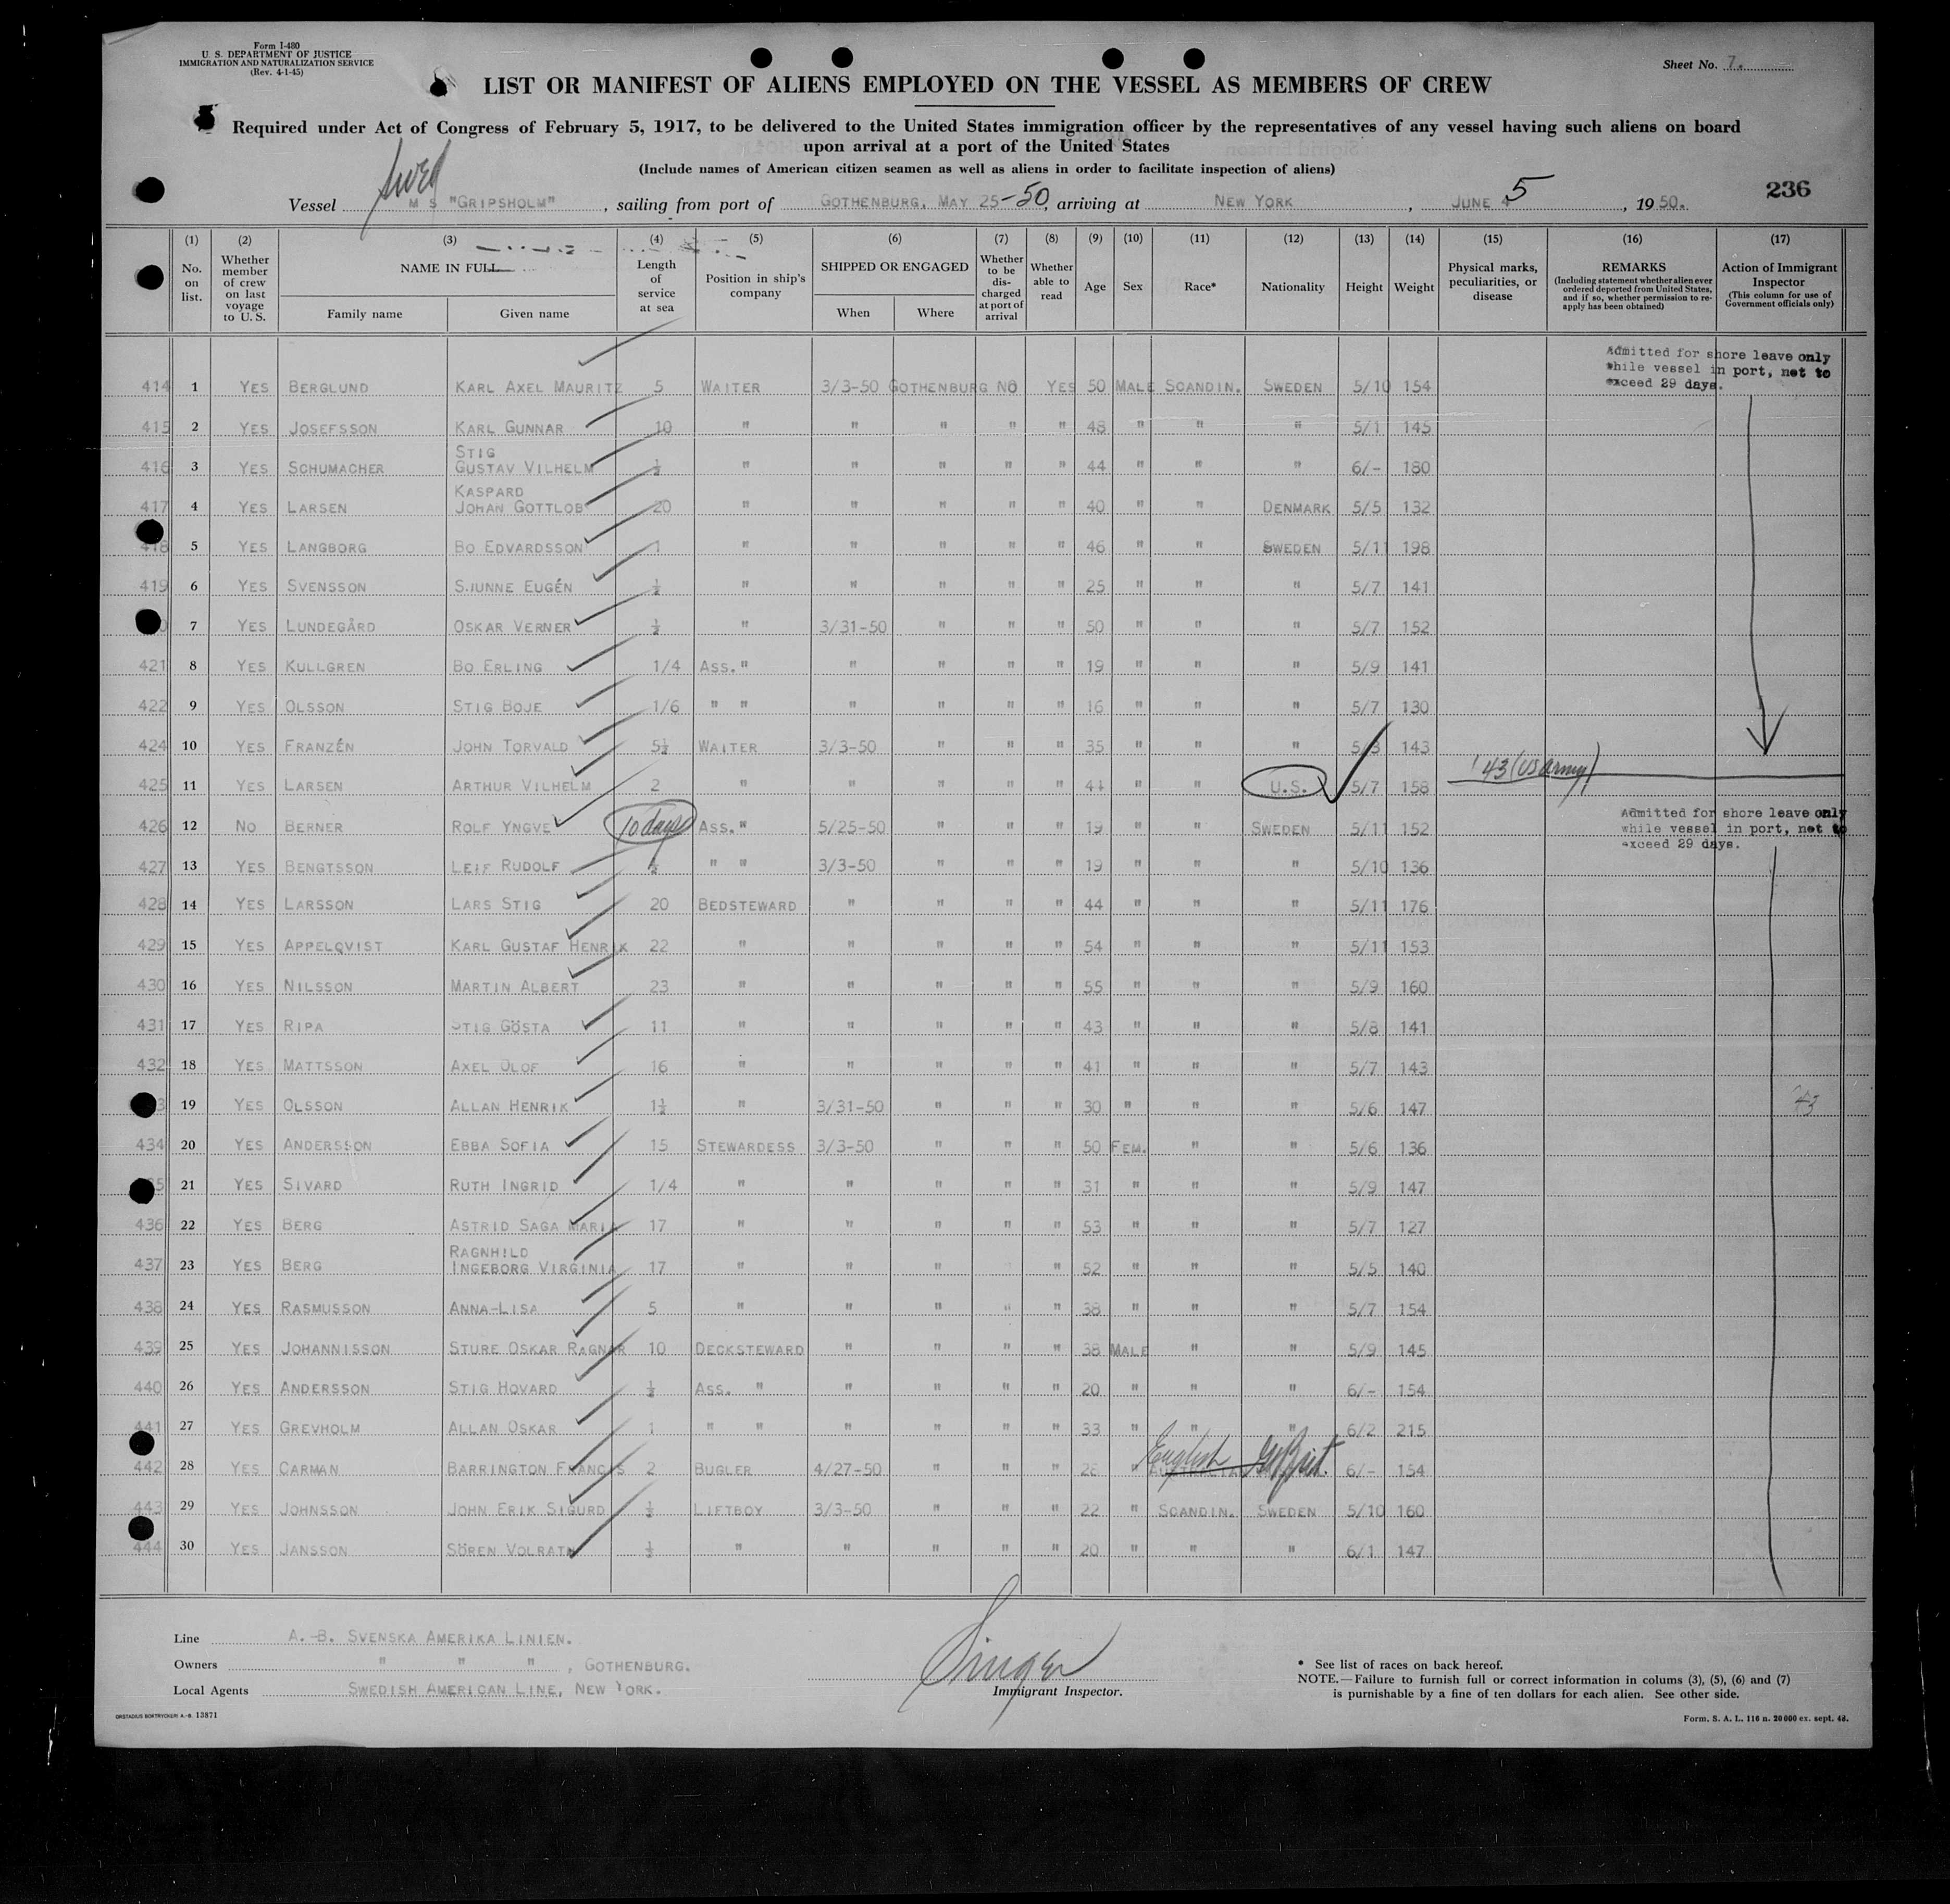 Form I-480
U. S. DEPARTMENT OF JUSTICE
IMMIGRATION AND NATURALIZATION SERVICE
(Rev. 4-1-45)
Sheet No. 7.
LIST OR MANIFEST OF ALIENS EMPLOYED ON THE VESSEL AS MEMBERS OF CREW
Required under Act of Congress of February 5, 1917, to be delivered to the United States immigration officer by the representatives of any vessel having such aliens on board
upon arrival at a port of the United States
(Include names of American citizen seamen as well as aliens in order to facilitate inspection of aliens)
236
Swed
Vessel M S "GRIPSHOLM", sailing from port of GOTHENBURG, MAY 25-50, arriving at NEW YORK, JUNE 4 5, 1950.
(1) (2) (3) (4) (5) (6) (7) (8) (9) (10) (11) (12) (13) (14) (15) (16) (17)
No. on list. Whether member of crew on last voyage to U. S. NAME IN FULL Family name Given name Length of service at sea Position in ship's company SHIPPED OR ENGAGED When Where Whether to be discharged at port of arrival Whether able to read Age Sex Race* Nationality Height Weight Physical marks, peculiarities, or disease REMARKS (Including statement whether alien ever ordered deported from United States, and if so, whether permission to reapply has been obtained) Action of Immigrant Inspector (This column for use of Government officials only)
Admitted for shore leave only
while vessel in port, not to
exceed 29 days.
414 1 YES BERGLUND KARL AXEL MAURITZ 5 WAITER 3/3-50 GOTHENBURG NO YES 50 MALE SCANDIN. SWEDEN 5/10 154
415 2 YES JOSEFSSON KARL GUNNAR 10 " " " " " 48 " " " 5/1 145
416 3 YES SCHUMACHER STIG GUSTAV VILHELM ½ " " " " " 44 " " " 6/- 180
417 4 YES LARSEN KASPARD JOHAN GOTTLOB 20 " " " " " 40 " " DENMARK 5/5 132
418 5 YES LANGBORG BO EDVARDSSON 1 " " " " " 46 " " SWEDEN 5/11 198
419 6 YES SVENSSON SJUNNE EUGÉN ½ " " " " " 25 " " " 5/7 141
7 YES LUNDEGÅRD OSKAR VERNER ½ " 3/31-50 " " " 50 " " " 5/7 152
421 8 YES KULLGREN BO ERLING 1/4 ASS. " " " " " 19 " " " 5/9 141
422 9 YES OLSSON STIG BOJE 1/6 " " " " " " 16 " " " 5/7 130
424 10 YES FRANZÉN JOHN TORVALD 5½ WAITER 3/3-50 " " " 35 " " " 5/8 143
425 11 YES LARSEN ARTHUR VILHELM 2 " " " " " 41 " " U.S. 5/7 158 '43 (US army)
426 12 NO BERNER ROLF YNGVE 10 days ASS. " 5/25-50 " " " 19 " " SWEDEN 5/11 152
Admitted for shore leave only
while vessel in port, not to
exceed 29 days.
427 13 YES BENGTSSON LEIF RUDOLF ½ " " 3/3-50 " " " 19 " " " 5/10 136
428 14 YES LARSSON LARS STIG 20 BEDSTEWARD " " " " 44 " " " 5/11 176
429 15 YES APPELQVIST KARL GUSTAF HENRIK 22 " " " " " 54 " " " 5/11 153
430 16 YES NILSSON MARTIN ALBERT 23 " " " " " 55 " " " 5/9 160
431 17 YES RIPA STIG GÖSTA 11 " " " " " 43 " " " 5/8 141
432 18 YES MATTSSON AXEL OLOF 16 " " " " " 41 " " " 5/7 143
19 YES OLSSON ALLAN HENRIK 1½ " 3/31-50 " " " 30 " " " 5/6 147 '43
434 20 YES ANDERSSON EBBA SOFIA 15 STEWARDESS 3/3-50 " " " 50 FEM. " " 5/6 136
21 YES SIVARD RUTH INGRID 1/4 " " " " " 31 " " " 5/9 147
436 22 YES BERG ASTRID SAGA MARIA 17 " " " " " 53 " " " 5/7 127
437 23 YES BERG RAGNHILD INGEBORG VIRGINIA 17 " " " " 52 " " " 5/5 140
438 24 YES RASMUSSON ANNA-LISA 5 " " " " " 38 " " " 5/7 154
439 25 YES JOHANNISSON STURE OSKAR RAGNAR 10 DECKSTEWARD " " " " 38 MALE " " 5/9 145
440 26 YES ANDERSSON STIG HOVARD ½ ASS. " " " " " 20 " " " 6/- 154
441 27 YES GREVHOLM ALLAN OSKAR 1 " " " " " " 33 " " " 6/2 215
442 28 YES CARMAN BARRINGTON FRANCIS 2 BUGLER 4/27-50 " " " 28 " English Gt Brit. 6/- 154
443 29 YES JOHNSSON JOHN ERIK SIGURD ½ LIFTBOY 3/3-50 " " " 22 " SCANDIN. SWEDEN 5/10 160
444 30 YES JANSSON SÖREN VOLRATH ½ " " " " " 20 " " " 6/1 147
Line A.-B. SVENSKA AMERIKA LINIEN.
Owners " " " , GOTHENBURG.
Local Agents SWEDISH AMERICAN LINE, NEW YORK.
Singer
Immigrant Inspector.
* See list of races on back hereof.
NOTE.—Failure to furnish full or correct information in colums (3), (5), (6) and (7)
is punishable by a fine of ten dollars for each alien. See other side.
ORSTADIUS BOKTRYCKERI A.-B. 13871
Form. S. A. L. 116 n. 20000 ex. sept. 48.